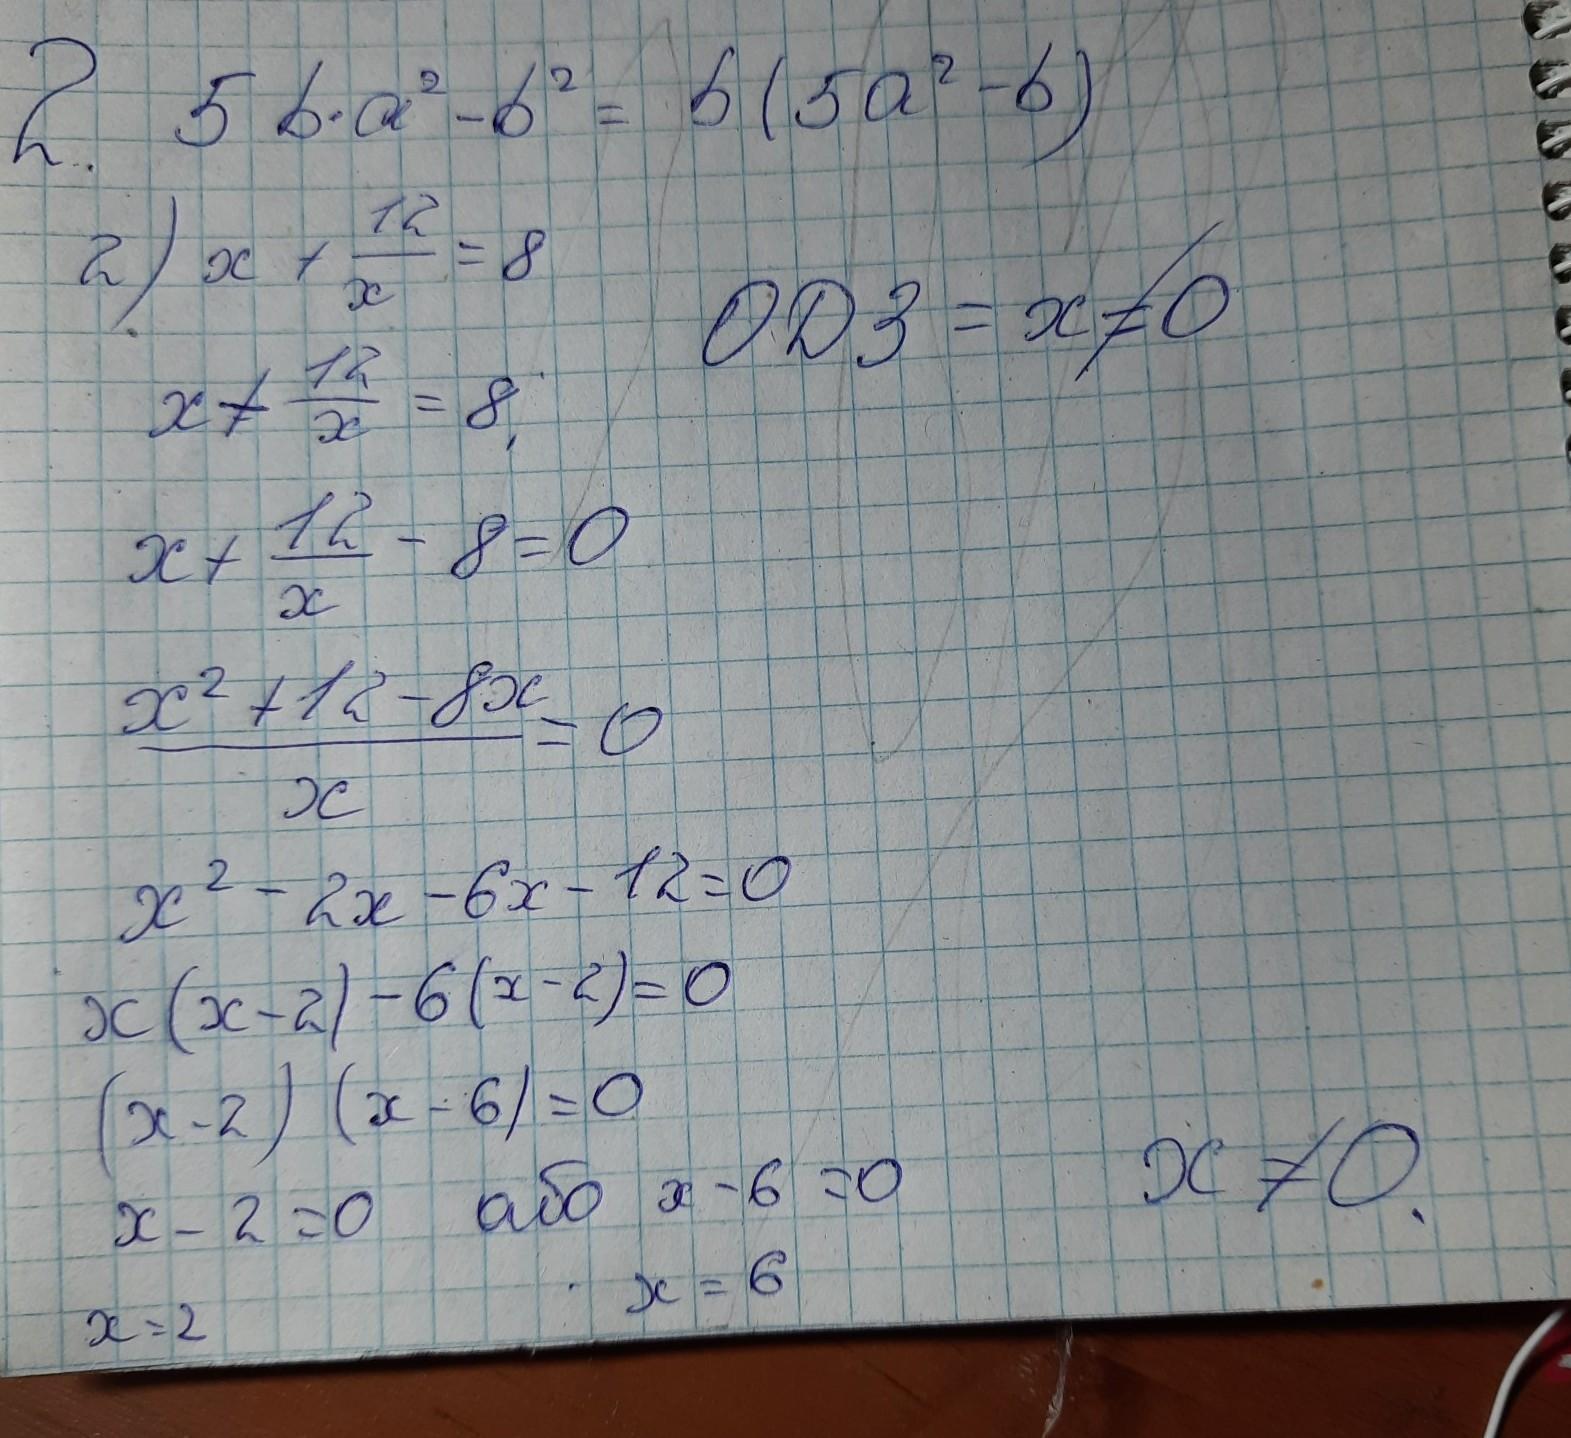 2. 5b·a² - b² = b(5a² - b)
2) x + 12/x = 8
ОДЗ = x ≠ 0
x + 12/x = 8,
x + 12/x - 8 = 0
(x² + 12 - 8x)/x = 0
x² - 2x - 6x - 12 = 0
x(x - 2) - 6(x - 2) = 0
(x - 2) (x - 6) = 0
x - 2 = 0 або x - 6 = 0 x ≠ 0.
x = 2 x = 6